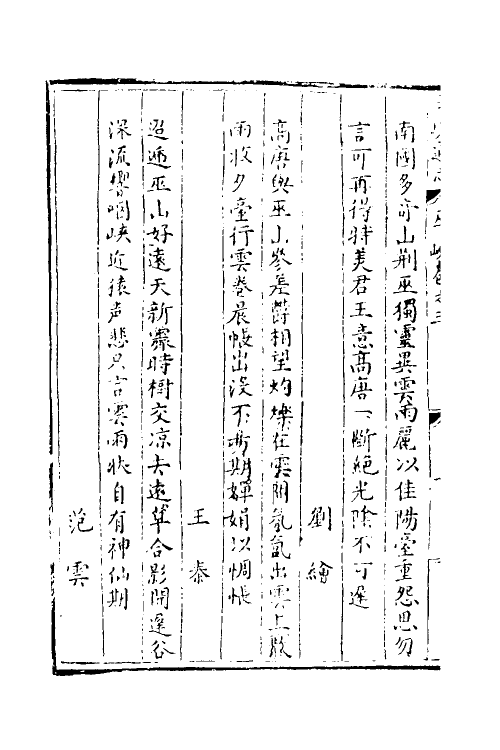 南國多奇山荆巫獨靈異雲雨麗以佳陽臺重怨思勿
言可再得特美君王意高唐一斷絕光陰不可遲
劉繪
高唐與巫山參差欝相望灼爍在雲間氛氳出雲上散
雨收夕臺行雲卷晨帳出没不易期嬋娟以惆悵
王泰
迢遞巫山好遠天新霽時樹交凉去遠草合影開遲谷
深流響咽峽近猿声悲只言雲雨狀自有神仙期
范雲